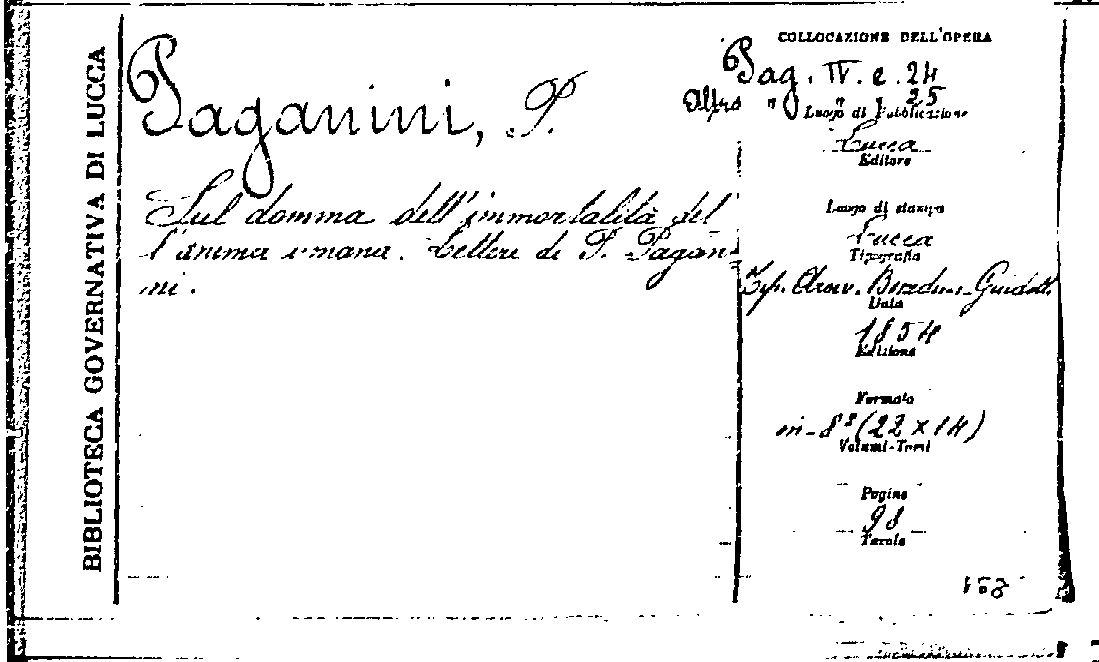 BIBLIOTECA GOVERNATIVA DI LUCCA
Paganini, P.
Sul domma dell'immortalità del
l'anima umana. Lettere di P. Pagani-
ni.
COLLOCAZIONE DELL'OPERA
Pag. IV. e. 24
Altro " " " 25
Luogo di Pubblicazione
Lucca
Editore
Luogo di stampa
Lucca
Tipografia
Tip. Guidotti
Data
1854
Edizione
Formato
in-8° (22 x 14)
Volumi-Tomi
Pagine
98
Tavole